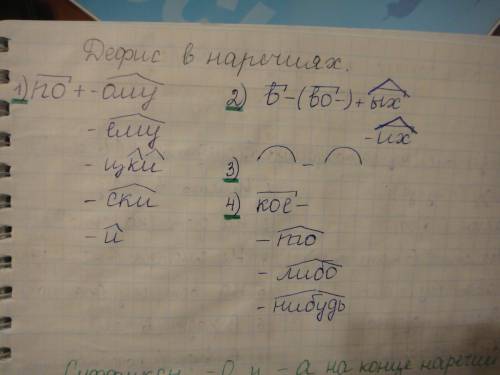 Дефис в наречиях.
1) по + -ому
-ему
-цки
-ски
-и
2) в- (во-) + ых
-их
3) -
4) кое-
-то
-либо
-нибудь
Суффиксы -о и -а на конце наречий